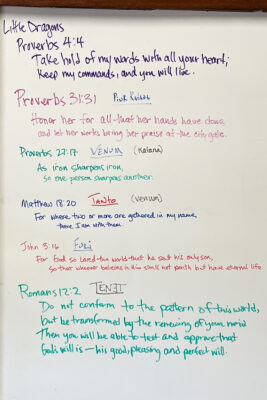 Little Dragons
Proverbs 4:4
Take hold of my words with all your heart;
Keep my commands, and you will live.
Proverbs 31:31 Pink
Honor her for all that her hands have done,
and let her works bring her praise at the city gate.
Proverbs 27:17 VENUM (Katana)
As iron sharpens iron,
So one person sharpens another.
Matthew 18:20 TANTO (Venum)
For where two or more are gathered in my name,
there I am with them.
John 3:16 FUJI
For God so loved the world that he sent his only son,
so that whoever believes in him shall not perish but have eternal life.
Romans 12:2 TENEI
Do not conform to the pattern of this world,
but be transformed by the renewing of your mind.
Then you will be able to test and approve what
God's will is — his good, pleasing and perfect will.